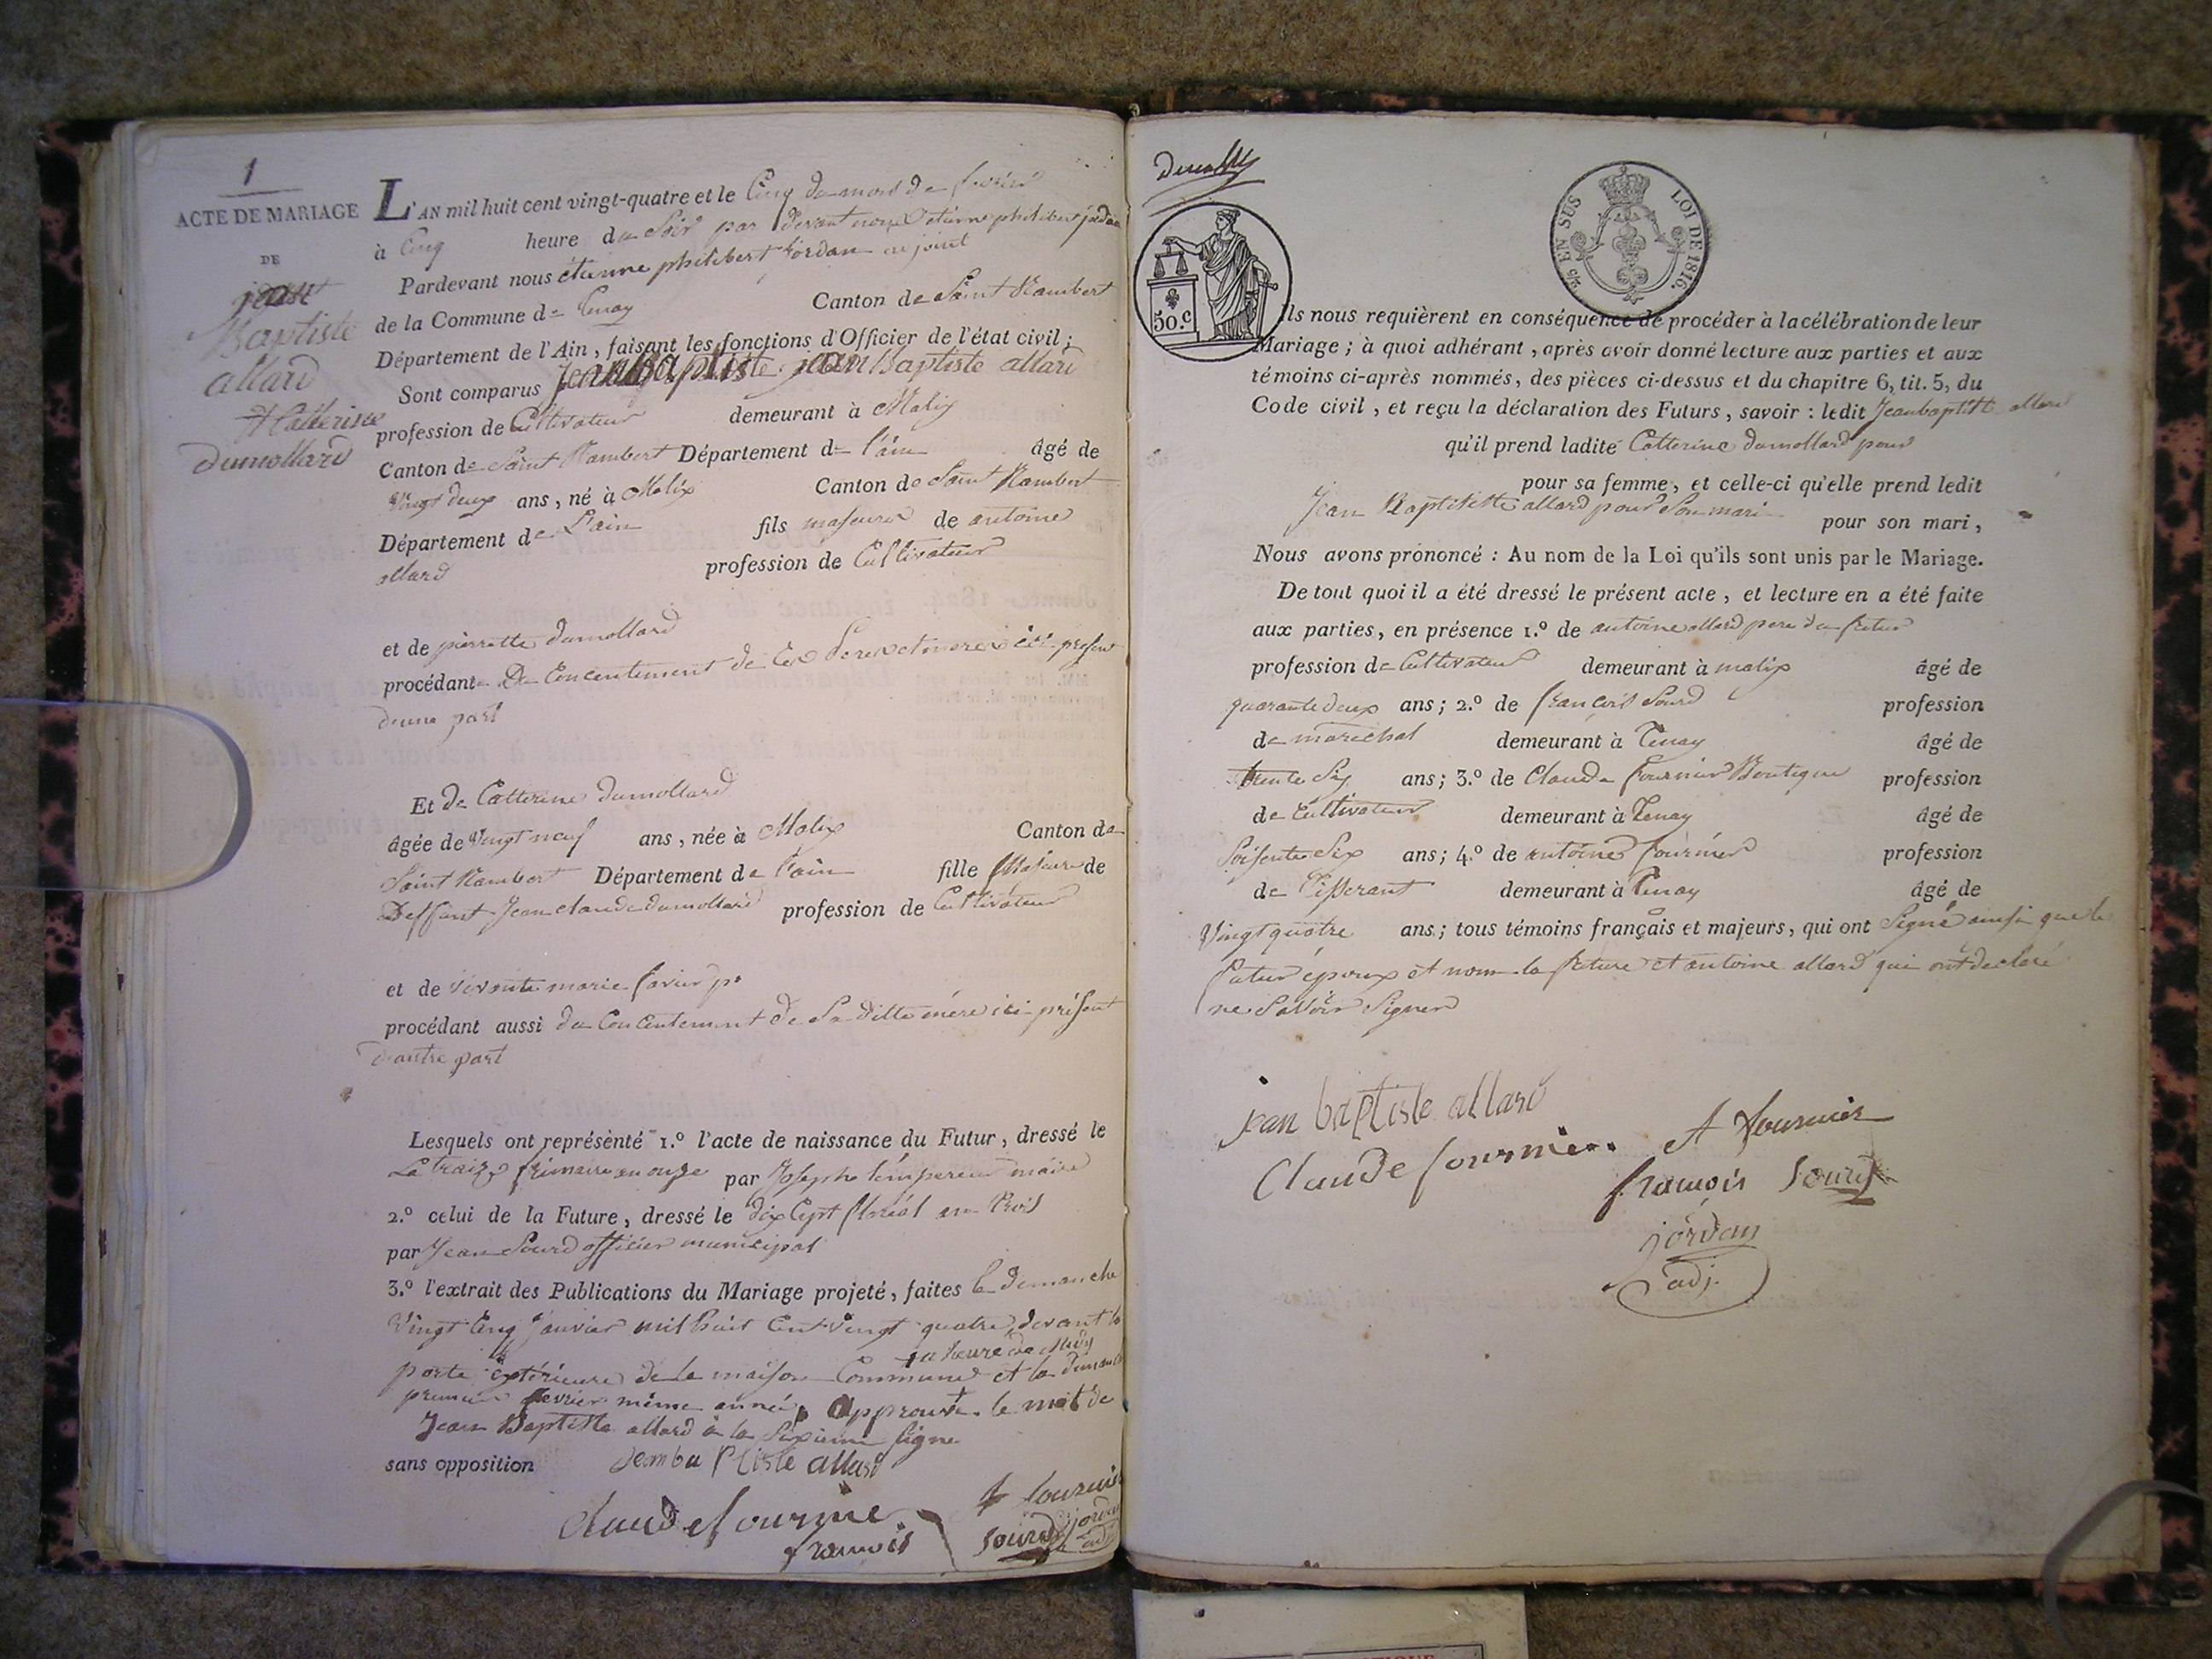 1
ACTE DE MARIAGE
DE
jean
Baptiste
allard
& Catherine
dumollard
L'AN mil huit cent vingt-quatre et le Cinq du mois de fevrier
à Cinq heure du Soir par devant nous etienne philibert jordan
Pardevant nous étienne philibert Jordan adjoint
de la Commune de Tenay Canton de Saint Rambert
Département de l'Ain, faisant les fonctions d'Officier de l'état civil;
Sont comparus jean Baptiste allard
profession de Cultivateur demeurant à Malix
Canton de Saint Rambert Département de l'ain âgé de
Vingt deux ans, né à Malix Canton de Saint Rambert
Département de L'ain fils majeure de antoine
allard profession de Cultivateur
et de pierrette dumollard
procédant De Concentement de Ces Pere et mere ici present
dune part
Et de Catterine dumollard
âgée de Vingt neuf ans, née à Malix Canton de
Saint Rambert Département de l'ain fille Majeure de
Deffunt Jean claude dumollard profession de Cultivateur
et de vivante marie favier
procédant aussi du Concentement de Sa ditte mére ici présent
d'autre part
Lesquels ont représenté 1.º l'acte de naissance du Futur, dressé le
Le traize frimaire an onze par Joseph lempereur maire
2.º celui de la Future, dressé le dix Cept floréal an Trois
par Jean Sourd officier municipal
3.º l'extrait des Publications du Mariage projeté, faites le dimanche
Vingt Cinq Janvier mil huit Cent Vingt quatre, devant la
porte extérieure de la maison Commune et le dimanche
a heure de Midy
premier fevrier même année, approuvé le mot de
Jean Baptiste allard à la Sixieme ligne
sans opposition Jean baptiste allard
Claude fournier A fournier
francois Sourd jordan
adj.
Ils nous requièrent en conséquence de procéder à la célébration de leur
Mariage; à quoi adhérant, après avoir donné lecture aux parties et aux
témoins ci-après nommés, des pièces ci-dessus et du chapitre 6, tit. 5, du
Code civil, et reçu la déclaration des Futurs, savoir: ledit Jean baptiste allard
qu'il prend ladite Catterine dumollard pour
pour sa femme, et celle-ci qu'elle prend ledit
Jean Baptitste allard pour Son mari pour son mari,
Nous avons prononcé: Au nom de la Loi qu'ils sont unis par le Mariage.
De tout quoi il a été dressé le présent acte, et lecture en a été faite
aux parties, en présence 1.º de antoine allard pere du futur
profession de Cultivateur demeurant à malix âgé de
quarante deux ans; 2.º de françois Sourd profession
de marechal demeurant à Tenay âgé de
trente Six ans; 3.º de Claude fournier Boutique profession
de Cultivateur demeurant à Tenay âgé de
Soisente Six ans; 4.º de antoine fournier profession
de Tisserant demeurant à Tenay âgé de
Vingt quatre ans; tous témoins français et majeurs, qui ont Signé ainsi que le
futur époux et nom la future et antoine allard qui ont declaré
ne Savoir Signer
jean baptiste allard
Claude fournier A fournier
francois Sourd
jordan
adj.
50.c
2/5 EN SUS LOI DE 1816.